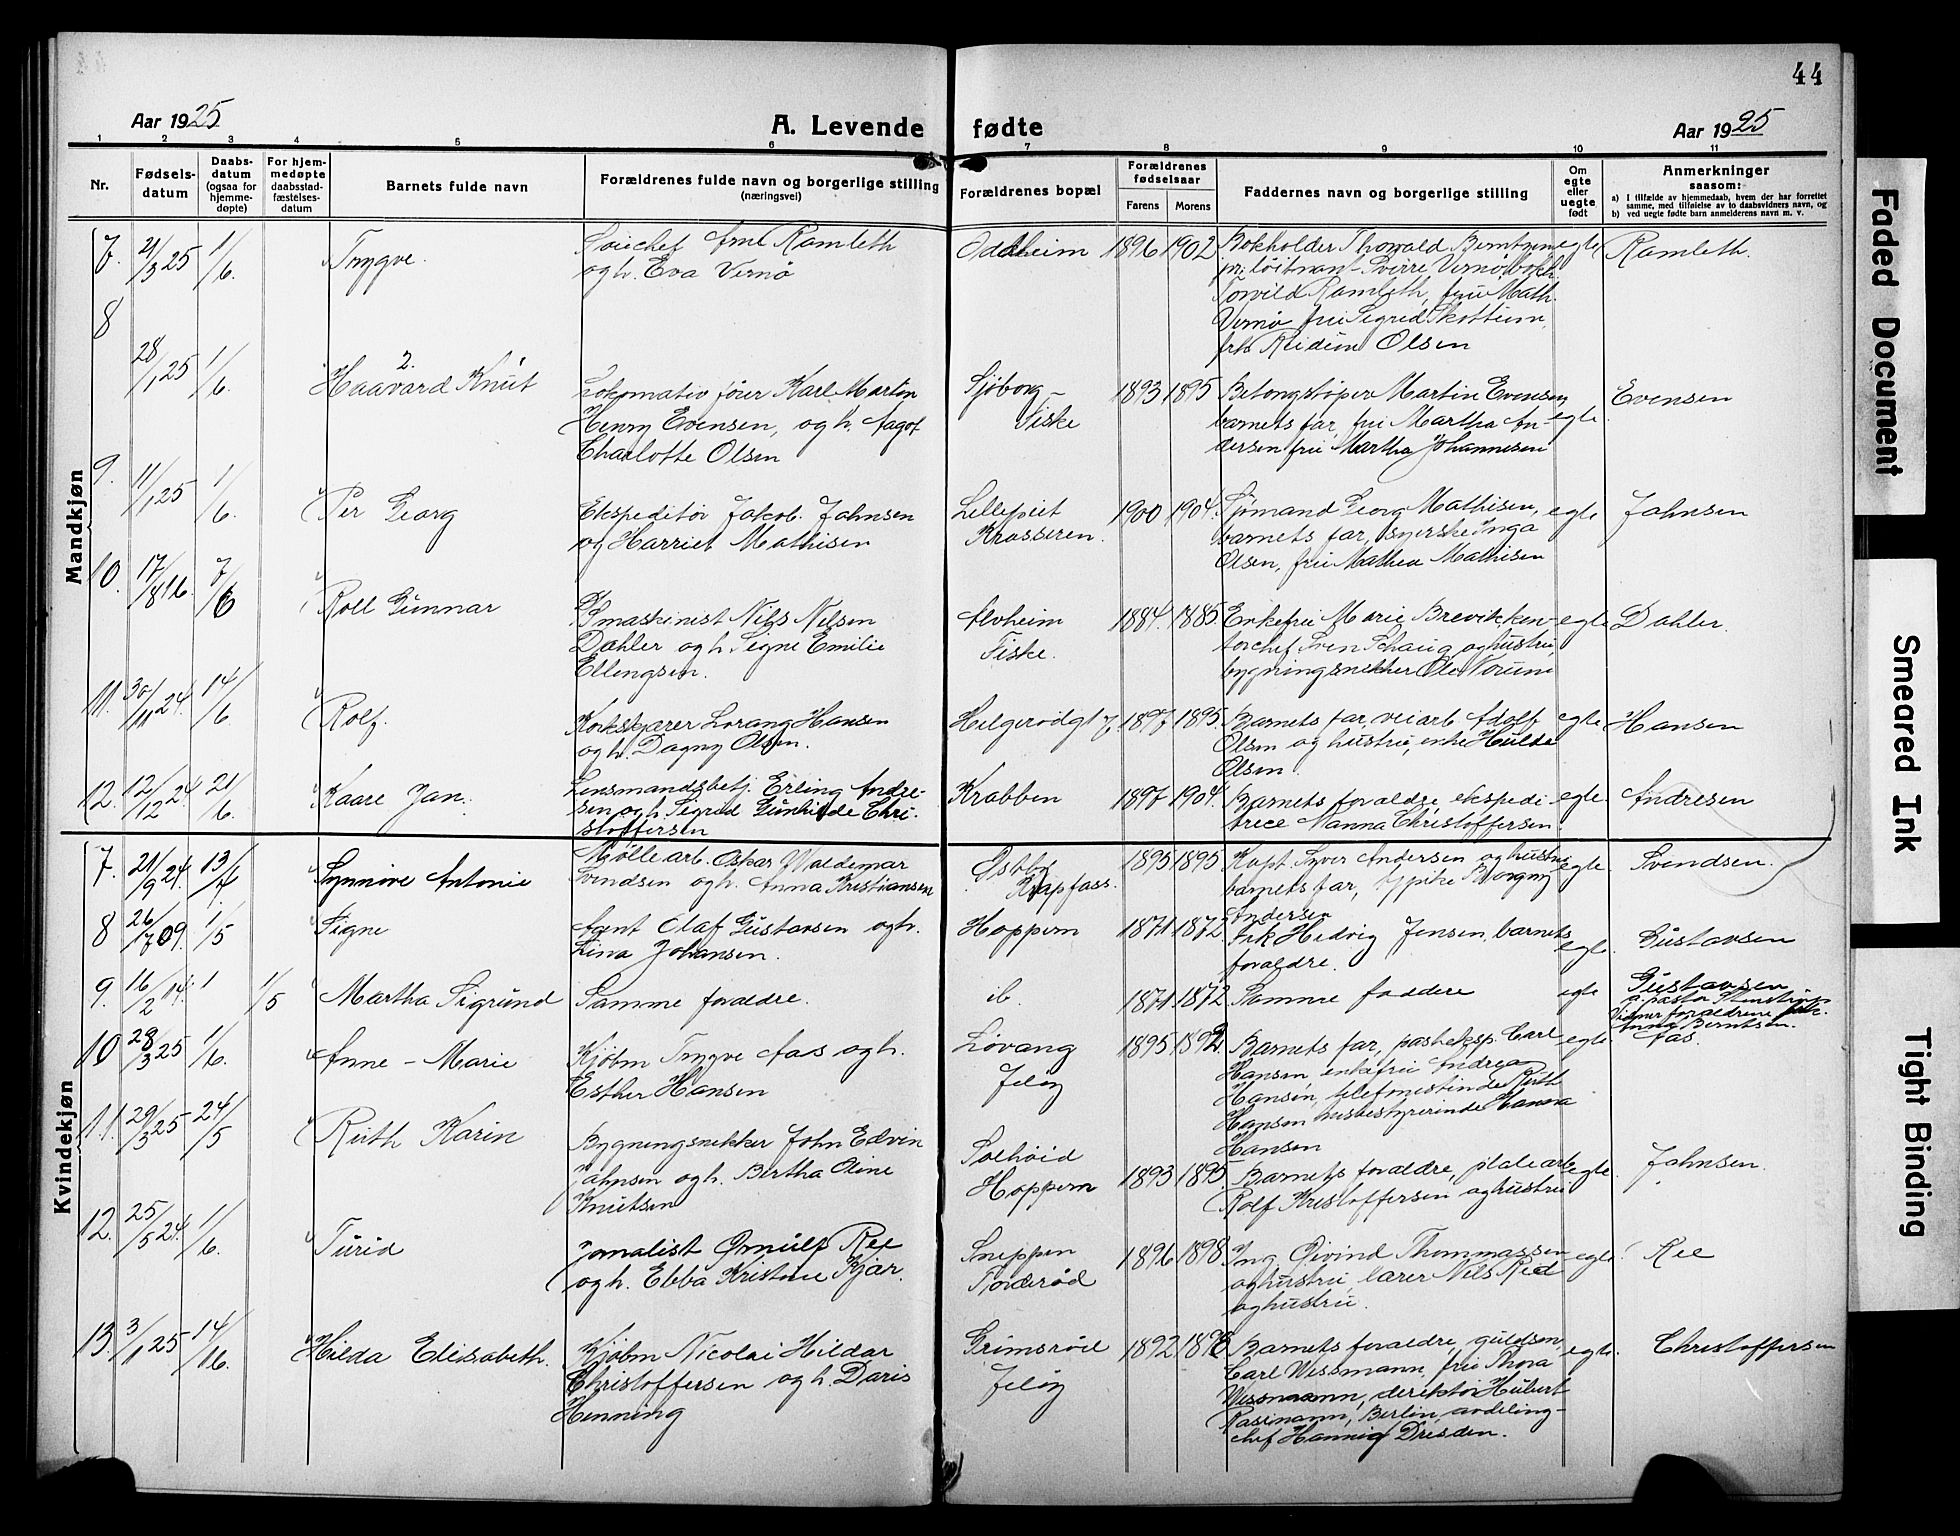 44
Aar 1925
A. Levende fødte
Aar 1925
1 2 3 4 5 6 7 8 9 10 11
Nr.
Fødsels-
datum
Daabs-
datum
(ogsaa for
hjemme-
døpte)
For hjem-
medøpte
daabsstad-
fæstelses-
datum
Barnets fulde navn
Forældrenes fulde navn og borgerlige stilling
(næringsvei)
Forældrenes bopæl
Forældrenes
fødselsaar
Farens Morens
Faddernes navn og borgerlige stilling
Om
egte
eller
uegte
født
Anmerkninger
saasom:
a) I tilfælde av hjemmedaab, hvem der har forrettet
samme, med tilføielse av to daabsvidners navn, og
b) ved uegte fødte barn anmelderens navn m. v.
Mandkjøn
7. 21/3 25 1/6. Trygve.
Ramleth
og h. Eva Vernø
Oddheim 1896 1902
Bokholder Thorvald Berntsen
pr. löitnant Sverre Vernø, bokh.
Torvild Ramleth, frü Math.
Vernø frü Sigrid
Olsen
egte Ramleth.
8
28/1 25 1/6. 2.
Haavard Knut
Lokomativ föier Karl Martin
Henry Evensen, og h. Aagot
Charlotte Olsen
Sjöborg –
Fiske
1893 1895
Betongstöper Martin Evensen
barnets far, frü Martha An-
dersen frü Martha Johannesen
egte. Evensen
9. 11/1 25 1/6. Per Georg
Ekspeditør Jakob Jahnsen
og Harriet Mathisen
Lilleveit
Krosseren.
1900 1904.
Sjömand Georg Mathisen,
barnets far, syerske Inga
Olsen, frü Mathea Mathisen
egte Jahnsen
10. 17/8 16. 7/6 Rolf Gunnar
maskinist Nils Nilsen
Dahler og h. Signe Emilie
Ellengsen.
Alvheim
Fiske.
1884. 1885
Enkefrü Marie Brevik, kon-
torchef Sven Schaug og hustru,
bygningsnekker Ole Norum
egte Dahler.
11. 30/11 24. 14/6 Rolf.
Korkskjærer Lorang Hansen
og h. Dagny Olsen.
Helgerödgt 7. 1897 1895.
Barnets far, veiarb. Adolf
Olsen og hustru, enke Hulda
Olsen.
egte Hansen
12. 12/12 24. 21/6. Kaare Jan.
Lensmandsbetj. Erling Andre-
sen og h. Sigrid Gunhilde Chri-
stoffersen
Krabben 1897 1904.
Barnets foraldre, ekspedi
trice Nanna Christoffersen.
egte. Andresen
Kvindekjøn
7. 21/9 24. 13/4. Synnöve Antonie
Möllearb. Oskar Waldemar
Svendsen og h. Anna Kristiansen
Østby
Krapfoss.
1895 1895
Kapt. Syver Andersen og hustru
barnets far, Borgny
Andersen
egte. Svendsen.
8 26/7 09. 1/5 Signe
Agent Olaf Gustavsen og h.
Lina Johansen.
Hoppern 1871. 1872.
Frk Hedvig Jensen, barnets
foraldre.
egte. Gustavsen
9. 16/2 14. 1 1/5 Martha Sigrund
Samme foraldre.
ib. 1871. 1872 Samme faddere egte Gustavsen
a. pastor
Vidner foraldrene
Anna Berntsen.
10 28/3 25 1/6. Anne – Marie
Kjöbm Trygve Aas og h.
Esther Hansen
Lövang
Jelöy
1895 1892
Barnets far, posteksp. Carl
Hansen, enkefrü Andrea
Hansen, telefonistinde Ruth
Hansen husbestyrerinde Hanna
Hansen
egte Aas.
11. 29/3 25 24/5 Ruth Karin
Bygningsnekker John Edvin
Jahnsen og h. Bertha Oline
Knutsen
Solhöid
Hoppern
1893 1895.
Barnets foraldre, platearb.
Rolf Kristoffersen og hustru
egte. Jahnsen.
12. 25/5 24. 1/6 Turid
Jornalist Ørnulf Ree
og h. Ebba Kristine Kjær.
Sneppen
Torderöd
1896 1898.
Ing Øivind Thommassen
og hustru, lærer Nils Ree
og hustru.
egte. Ree
13. 3/1 25 14/6. Hilda Elisabeth.
Kjöbm Nicolai Hildar
Christoffersen og h. Doris
Henning
Grimsröd
Jelöy
1892 1898
Barnets foraldre, guldsm.
Carl Wissmann, frü Thora
Wissmann, direktör Hubert
Rassmann, Berlin, avdeling-
chef Hannig Dresden.
egte. Christoffersen
Faded Document
Smeared Ink
Tight Binding